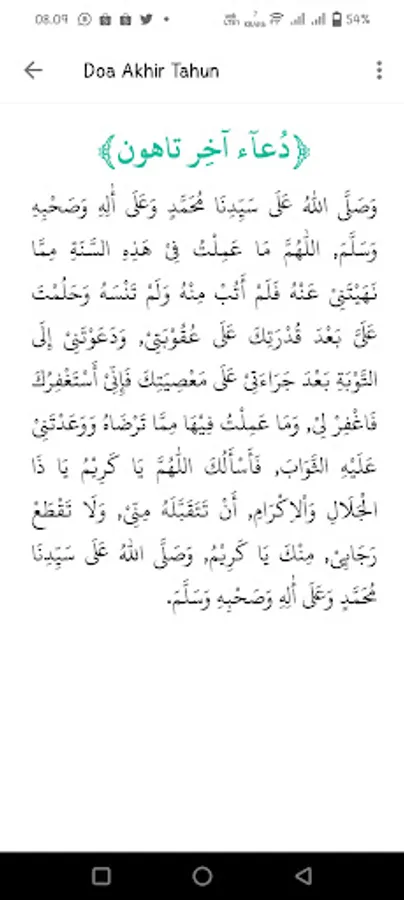 08.09 54%
Doa Akhir Tahun
﴿دُعآء آخِر تاهون﴾
وَصَلَّى اللهُ عَلَى سَيِّدِنَا مُحَمَّدٍ وَعَلَى أٰلِهِ وَصَحْبِهِ
وَسَلَّمَ, اَللّٰهُمَّ مَا عَمِلْتُ فِيْ هَذِهِ السَّنَةِ مِمَّا
نَهَيْتَنِيْ عَنْهُ فَلَمْ أَتُبْ مِنْهُ وَلَمْ تَنْسَهُ وَحَلُمْتَ
عَلَيَّ بَعْدَ قُدْرَتِكَ عَلَى عُقُوْبَتِيْ, وَدَعَوْتَنِيْ إِلَى
التَّوْبَةِ بَعْدَ جَرَاءَتِيْ عَلَى مَعْصِيَتِكَ فَإِنِّيْ أَسْتَغْفِرُكَ
فَاغْفِرْ لِيْ, وَمَا عَمِلْتُ فِيْهَا مِمَّا تَرْضَاهُ وَوَعَدْتَنِيْ
عَلَيْهِ الثَّوَابَ, فَأَسْأَلُكَ اللّٰهُمَّ يَا كَرِيْمُ يَا ذَا
الْجَلَالِ وَالْاِكْرَامِ, أَنْ تَتَقَبَّلَهُ مِنِّيْ, وَلَا تَقْطَعْ
رَجَائِيْ, مِنْكَ يَا كَرِيْمُ, وَصَلَّى اللهُ عَلَى سَيِّدِنَا
مُحَمَّدٍ وَعَلَى أٰلِهِ وَصَحْبِهِ وَسَلَّمَ.